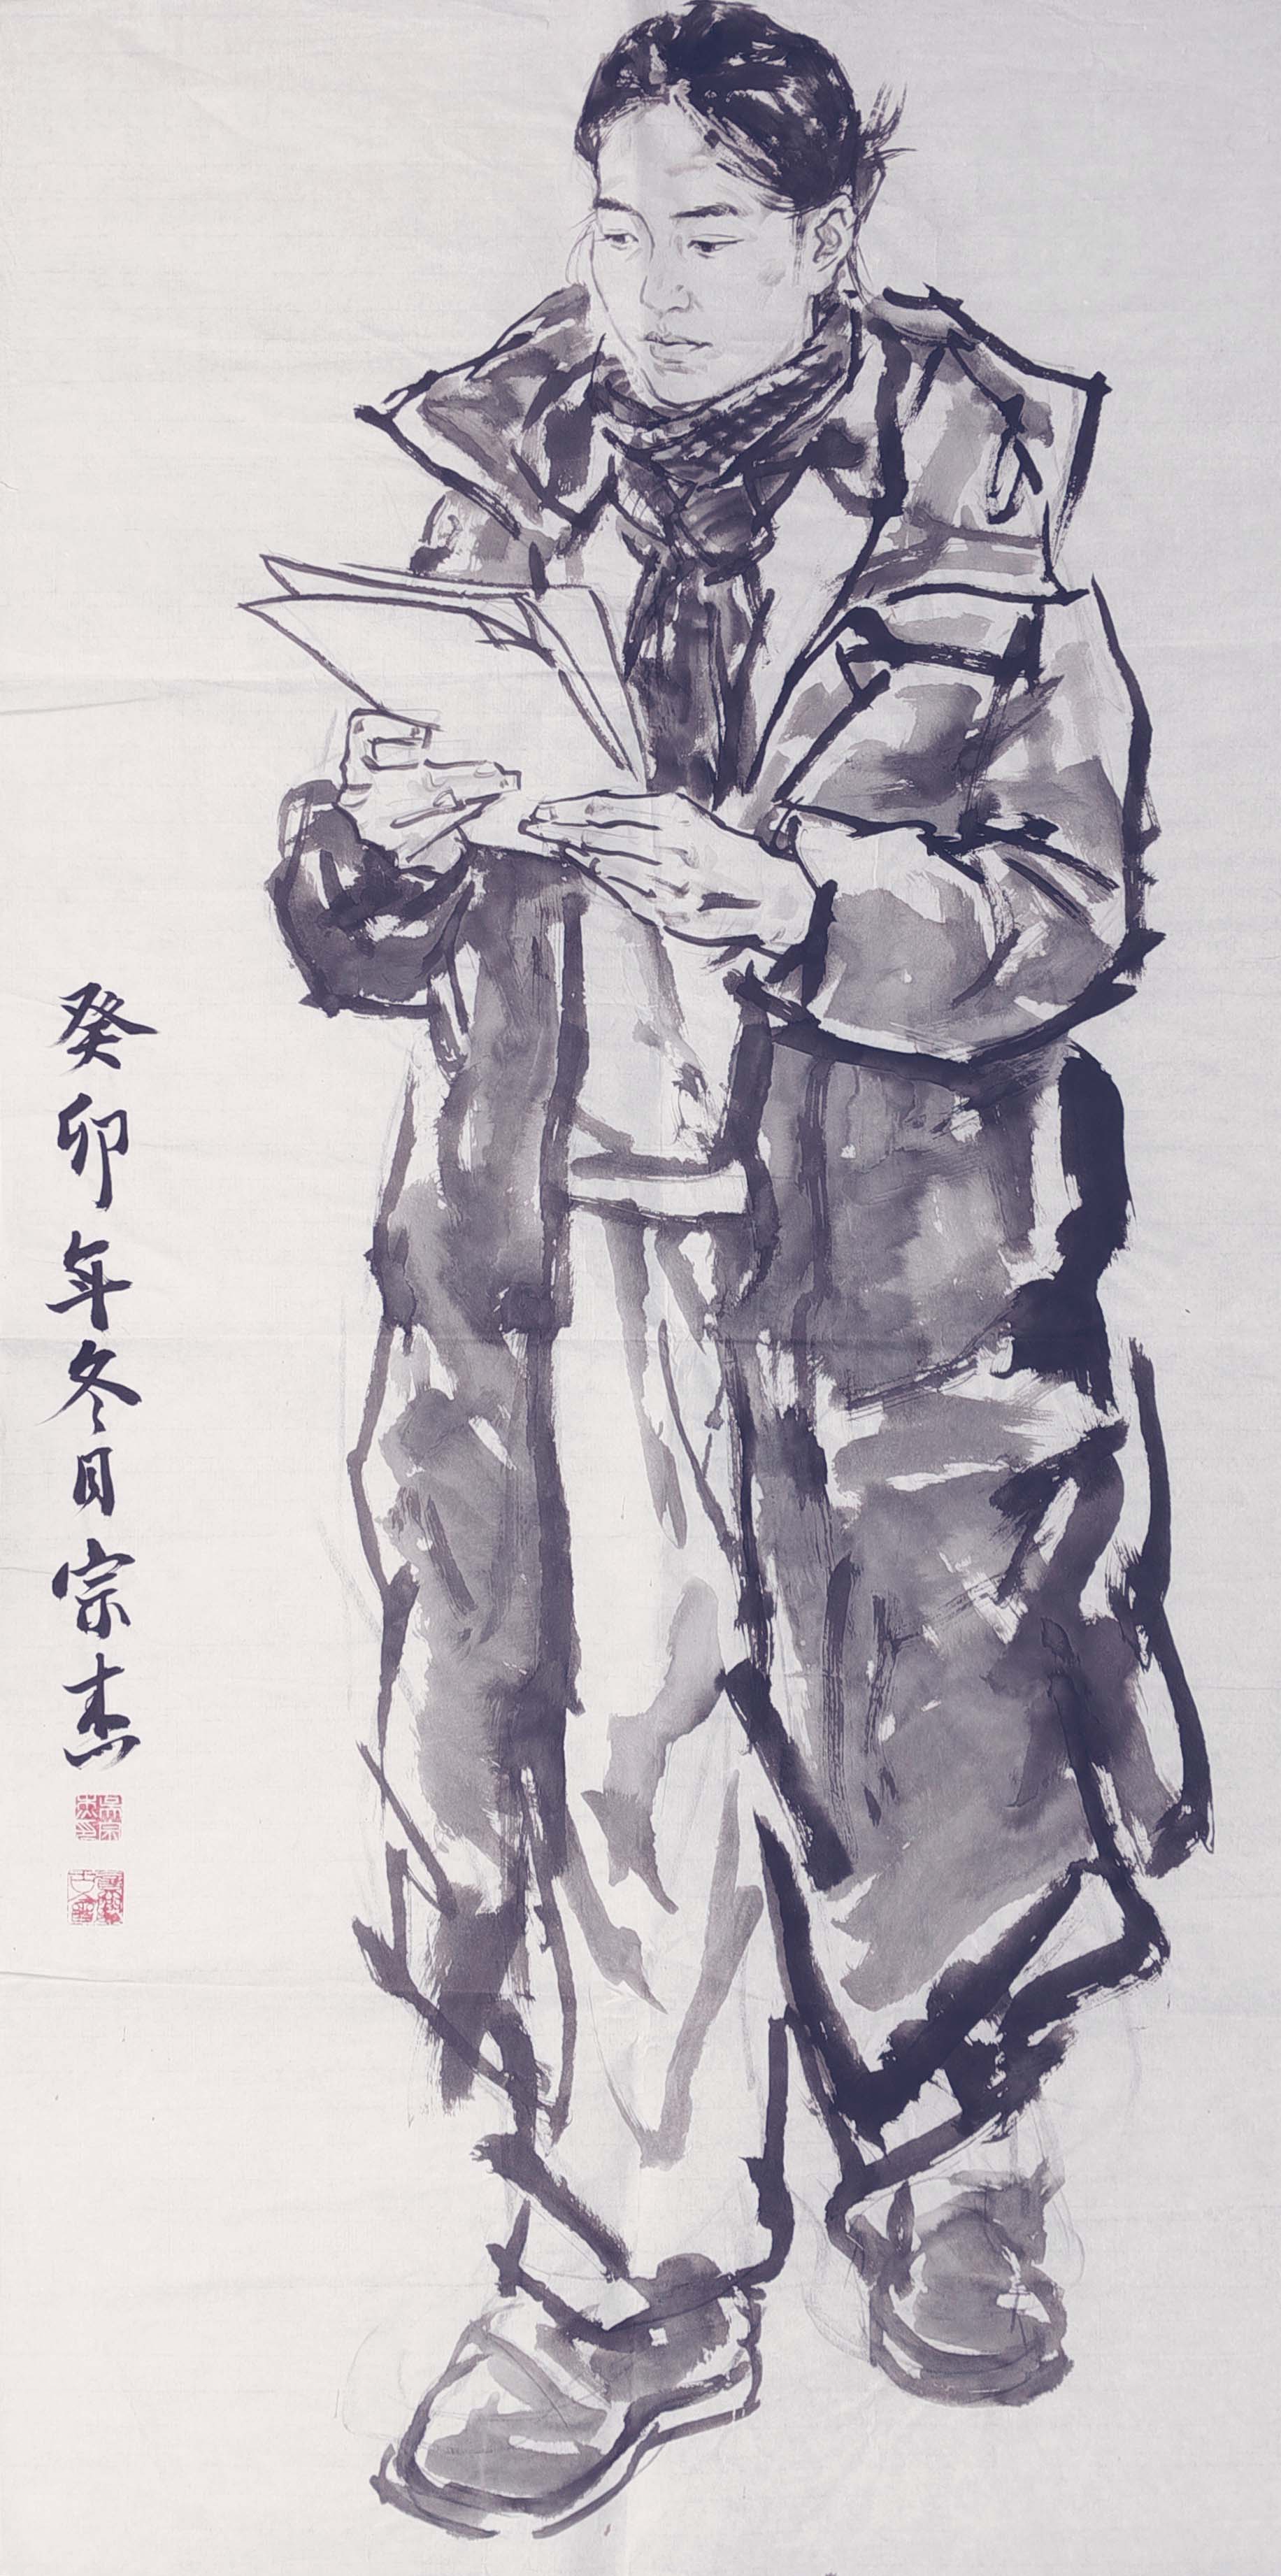 癸卯年冬月宗杰